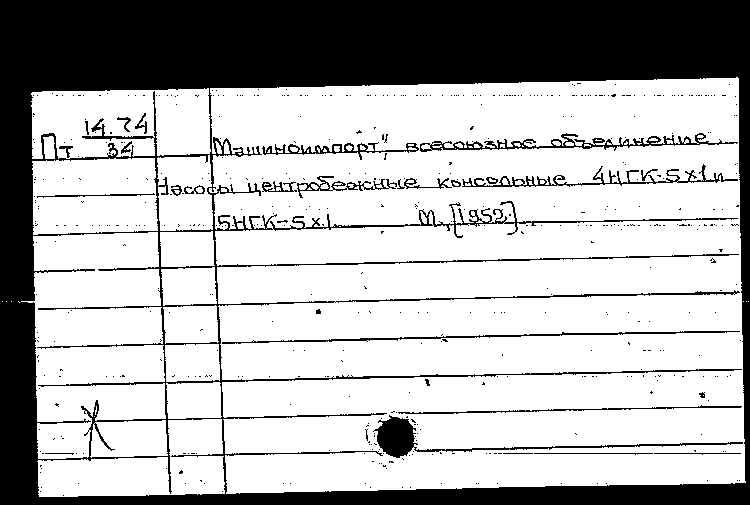 Пт 14.74/34
„Машиноимпорт", всесоюзное объединение.
Насосы центробежные консольные 4НГК-5х1 и
5НГК-5х1. М., [1959].